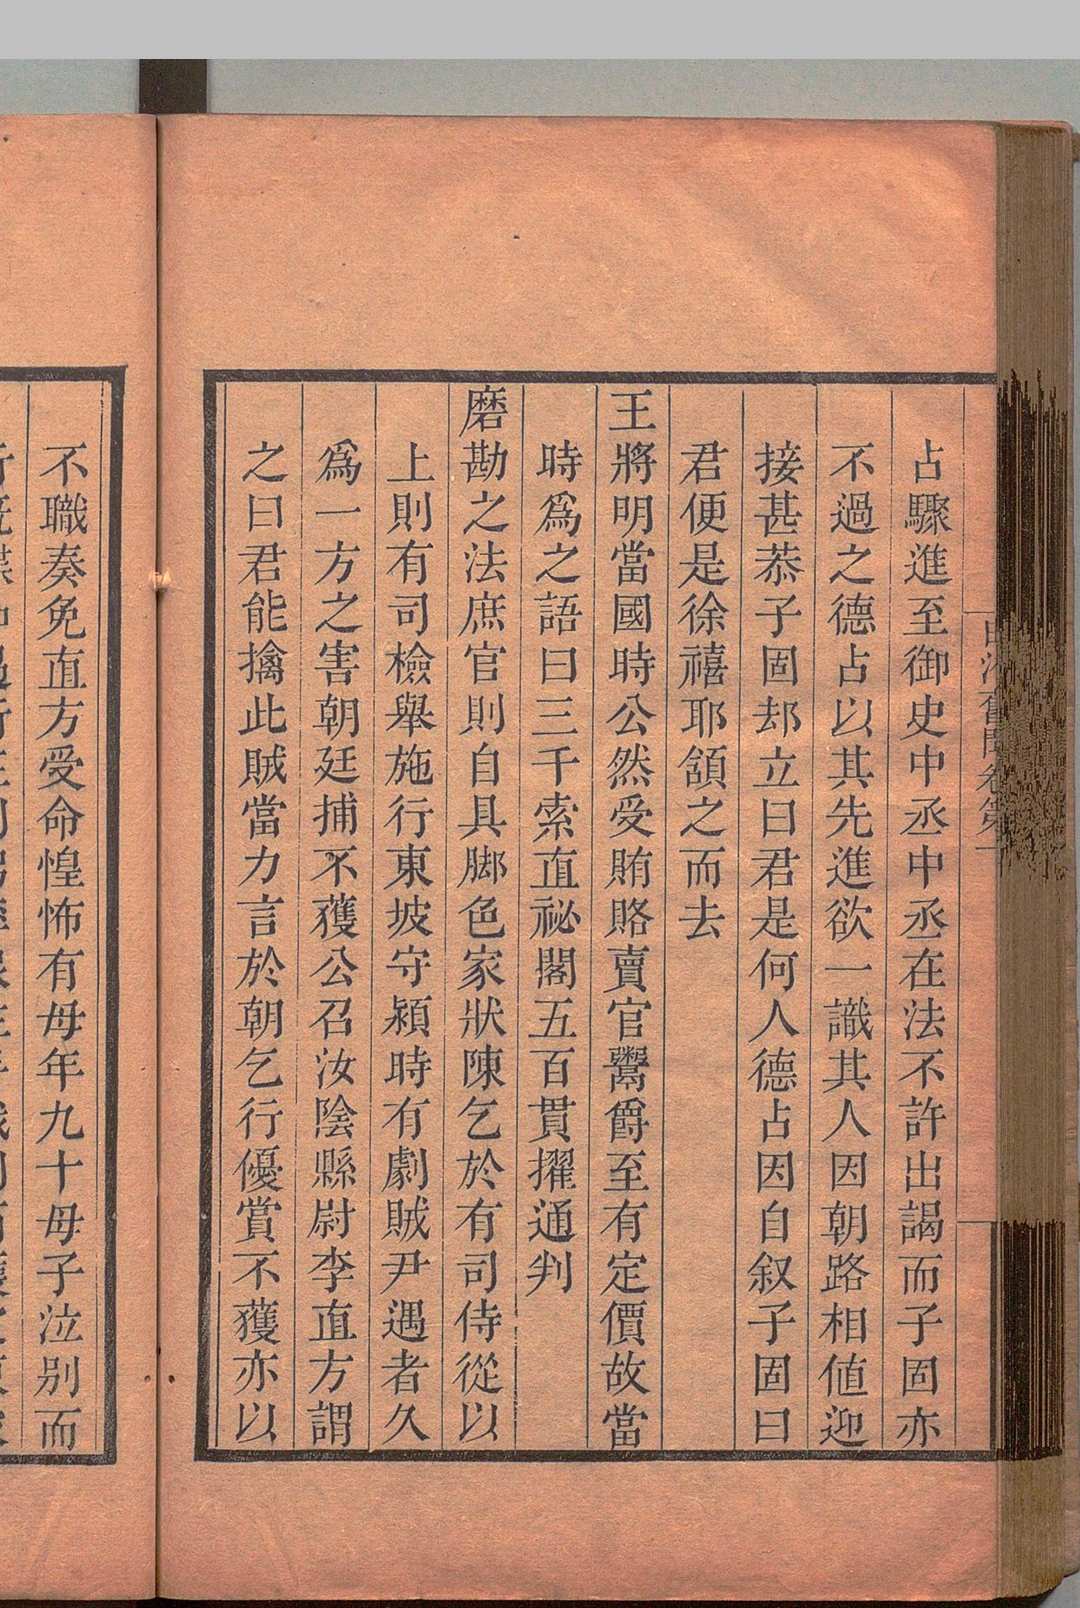 占驟進至御史中丞中丞在法不許出謁而子固亦
不過之德占以其先進欲一識其人因朝路相値迎
接甚恭子固却立曰君是何人德占因自叙子固曰
君便是徐禧耶頷之而去
王將明當國時公然受賄賂賣官鬻爵至有定價故當
時爲之語曰三千索直祕閣五百貫擢通判
磨勘之法庶官則自具脚色家狀陳乞於有司侍從以
上則有司檢舉施行東坡守潁時有劇賊尹遇者久
爲一方之害朝廷捕不獲公召汝陰縣尉李直方謂
之曰君能擒此賊當力言於朝乞行優賞不獲亦以
不職奏免直方受命惶怖有母年九十母子泣别而